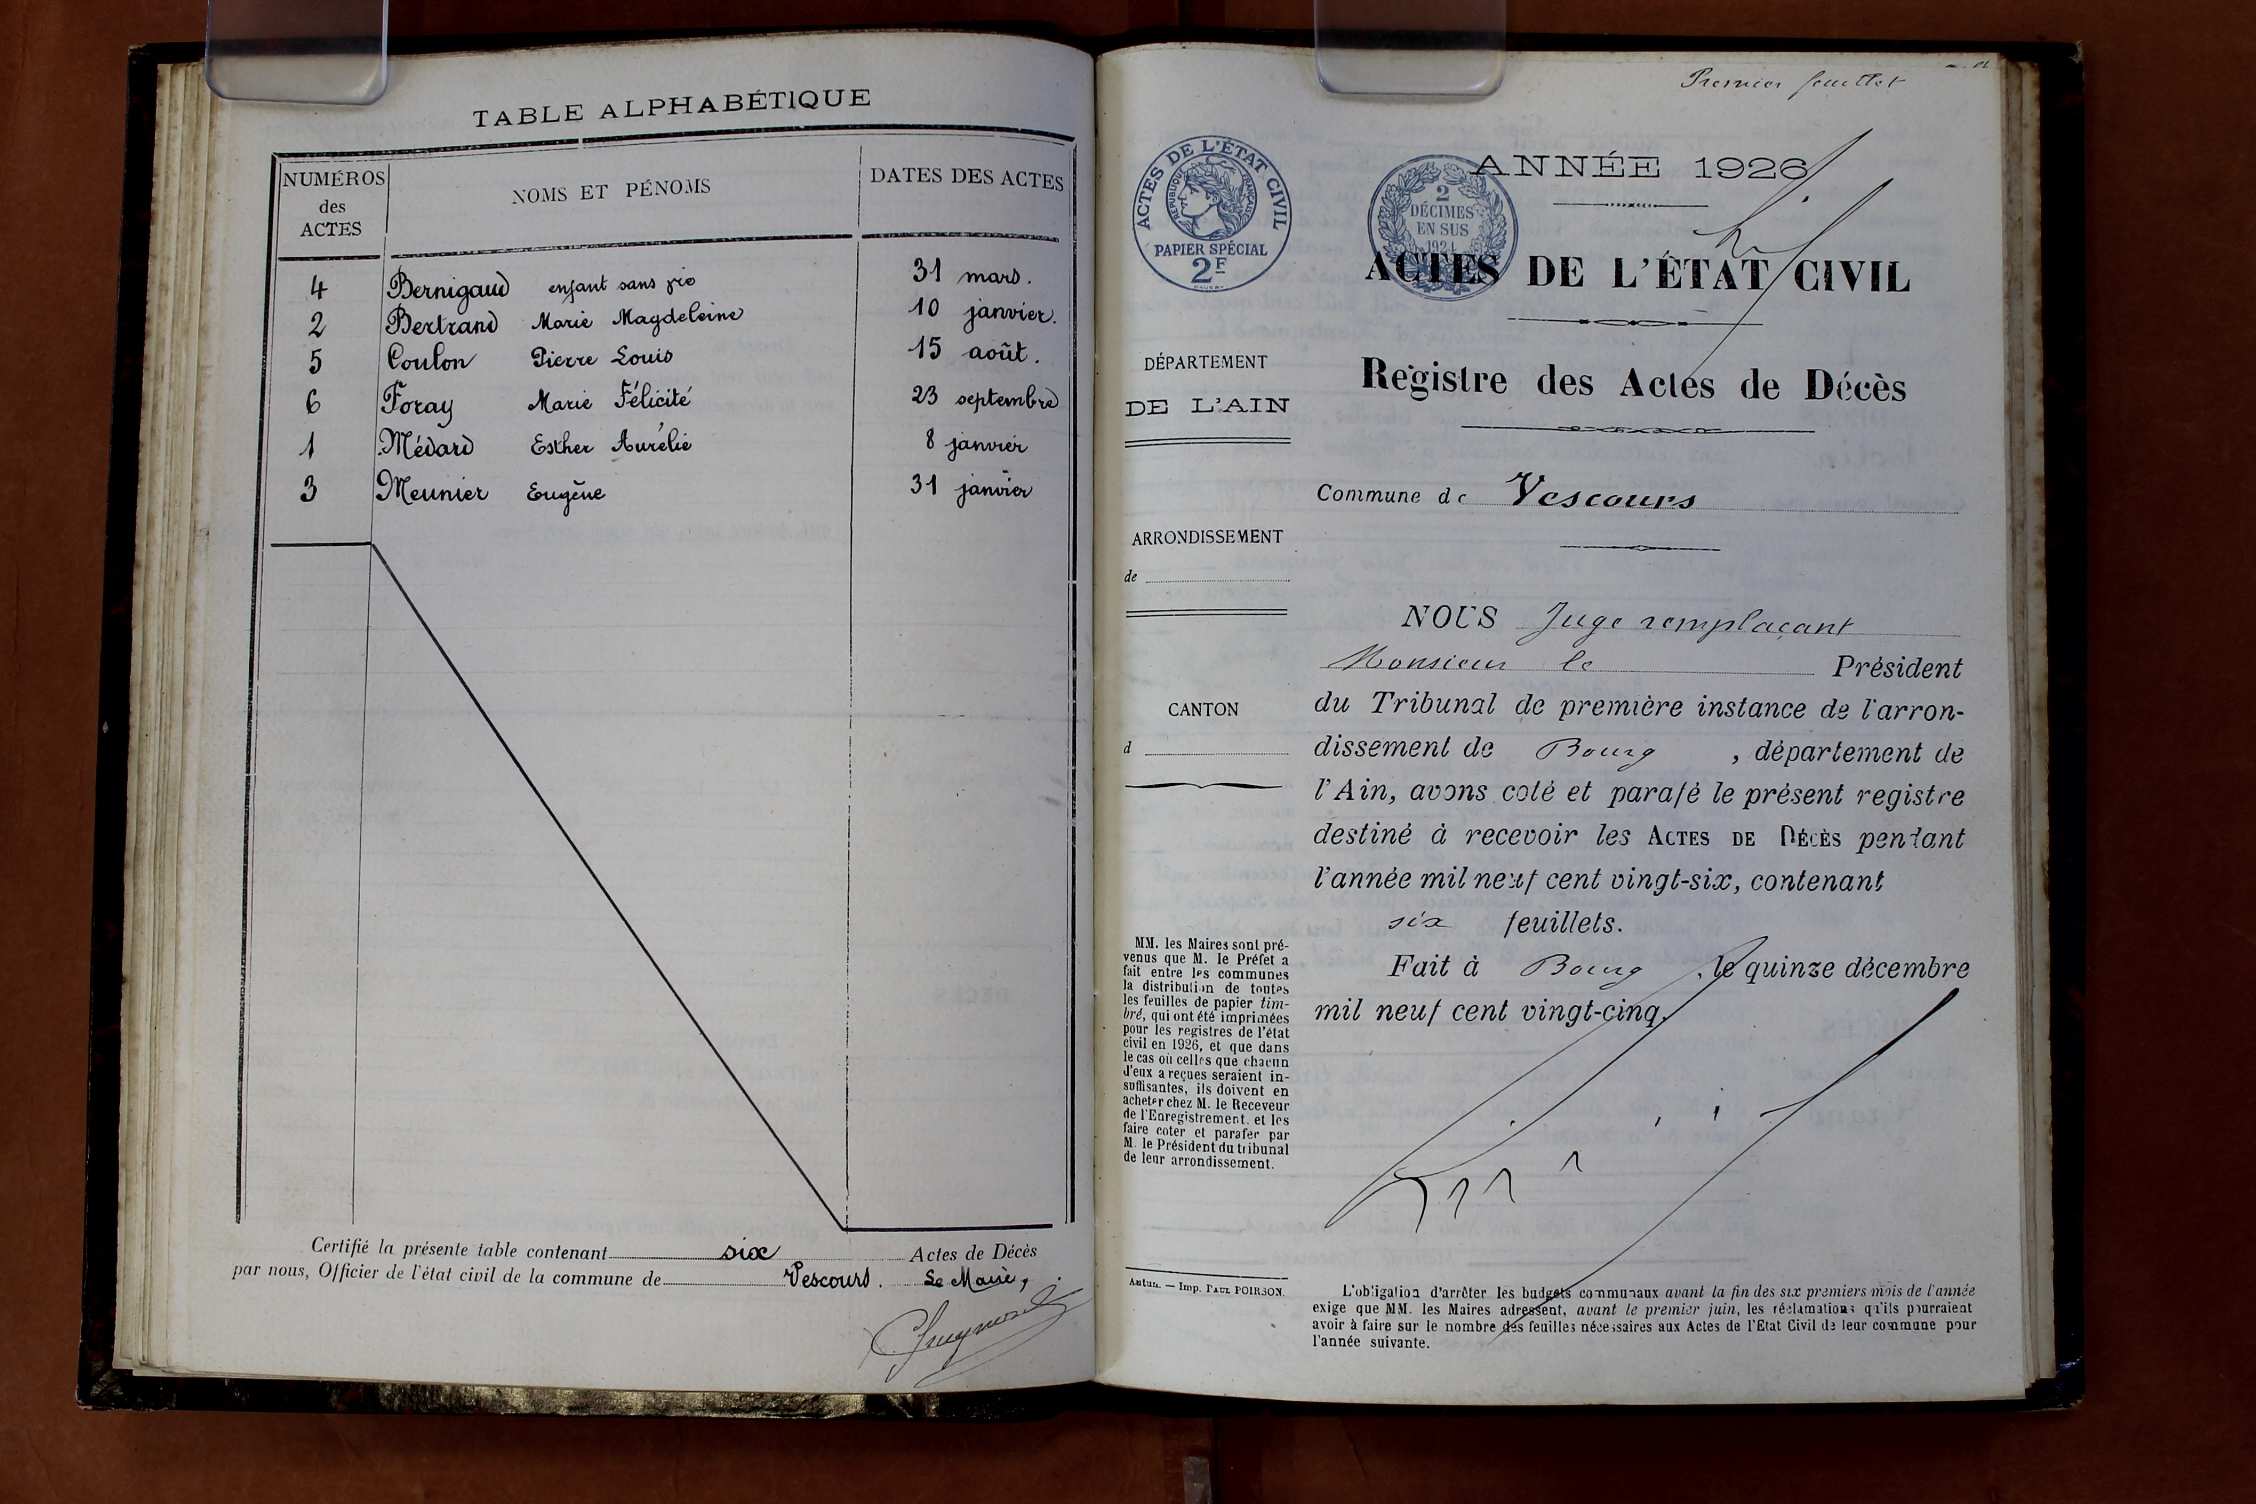 TABLE ALPHABÉTIQUE
NUMÉROS des ACTES
NOMS ET PÉNOMS
DATES DES ACTES
4 Bernigaud enfant sans vie 31 mars.
2 Bertrand Marie Magdeleine 10 janvier.
5 Coulon Pierre Louis 15 août.
6 Foray Marie Félicité 23 septembre
1 Médard Esther Aurélie 8 janvier
3 Meunier Eugène 31 janvier
Certifié la présente table contenant six Actes de Décès
par nous, Officier de l'état civil de la commune de Vescours. Le Maire,
Premier feuillet
ACTES DE L'ÉTAT CIVIL
RÉPUBLIQUE FRANÇAISE
PAPIER SPÉCIAL
2F
2
DÉCIMES
EN SUS
1924
ANNÉE 1926
ACTES DE L'ÉTAT CIVIL
Registre des Actes de Décès
DÉPARTEMENT
DE L'AIN
ARRONDISSEMENT
de
CANTON
d
MM. les Maires sont pré-
venus que M. le Préfet a
fait entre les communes
la distribution de toutes
les feuilles de papier tim-
bré, qui ont été imprimées
pour les registres de l'état
civil en 1926, et que dans
le cas où celles que chacun
d'eux a reçues seraient in-
suffisantes, ils doivent en
acheter chez M. le Receveur
de l'Enregistrement, et les
faire coter et parafer par
M. le Président du tribunal
de leur arrondissement.
Autun. — Imp. PAUL POIRSON.
Commune de Vescours
NOUS Juge remplaçant
Monsieur le Président
du Tribunal de première instance de l'arron-
dissement de Bourg, département de
l'Ain, avons coté et parafé le présent registre
destiné à recevoir les ACTES DE DÉCÈS pendant
l'année mil neuf cent vingt-six, contenant
six feuillets.
Fait à Bourg, le quinze décembre
mil neuf cent vingt-cinq.
L'obligation d'arrêter les budgets communaux avant la fin des six premiers mois de l'année
exige que MM. les Maires adressent, avant le premier juin, les réclamations qu'ils pourraient
avoir à faire sur le nombre des feuilles nécessaires aux Actes de l'Etat Civil de leur commune pour
l'année suivante.